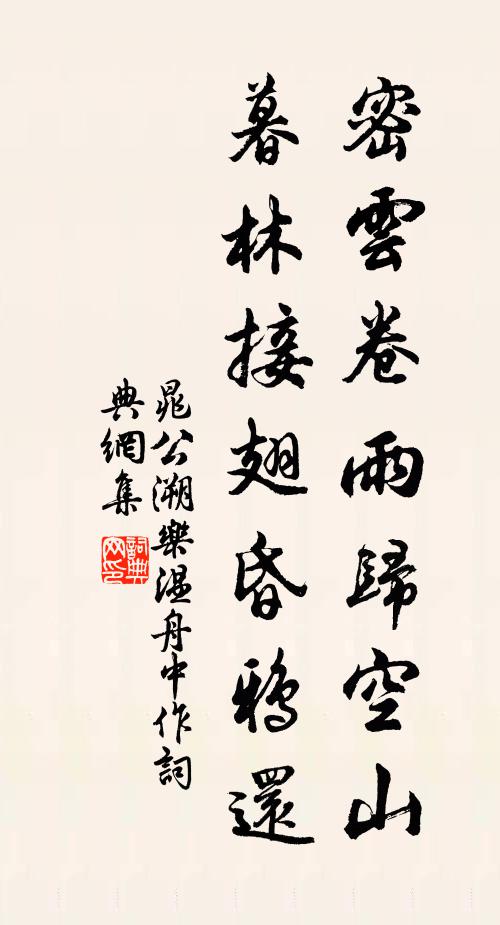 密雲卷雨歸空山
暮林接翅昏鴉還
晁公溯樂温舟中作詞
典網集
詞典网印